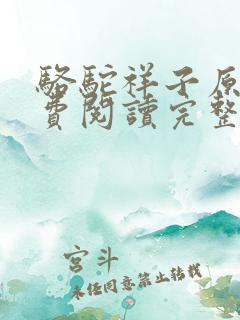 駱駝祥子原
費閱讀完整
宮斗
未经同意禁止转载